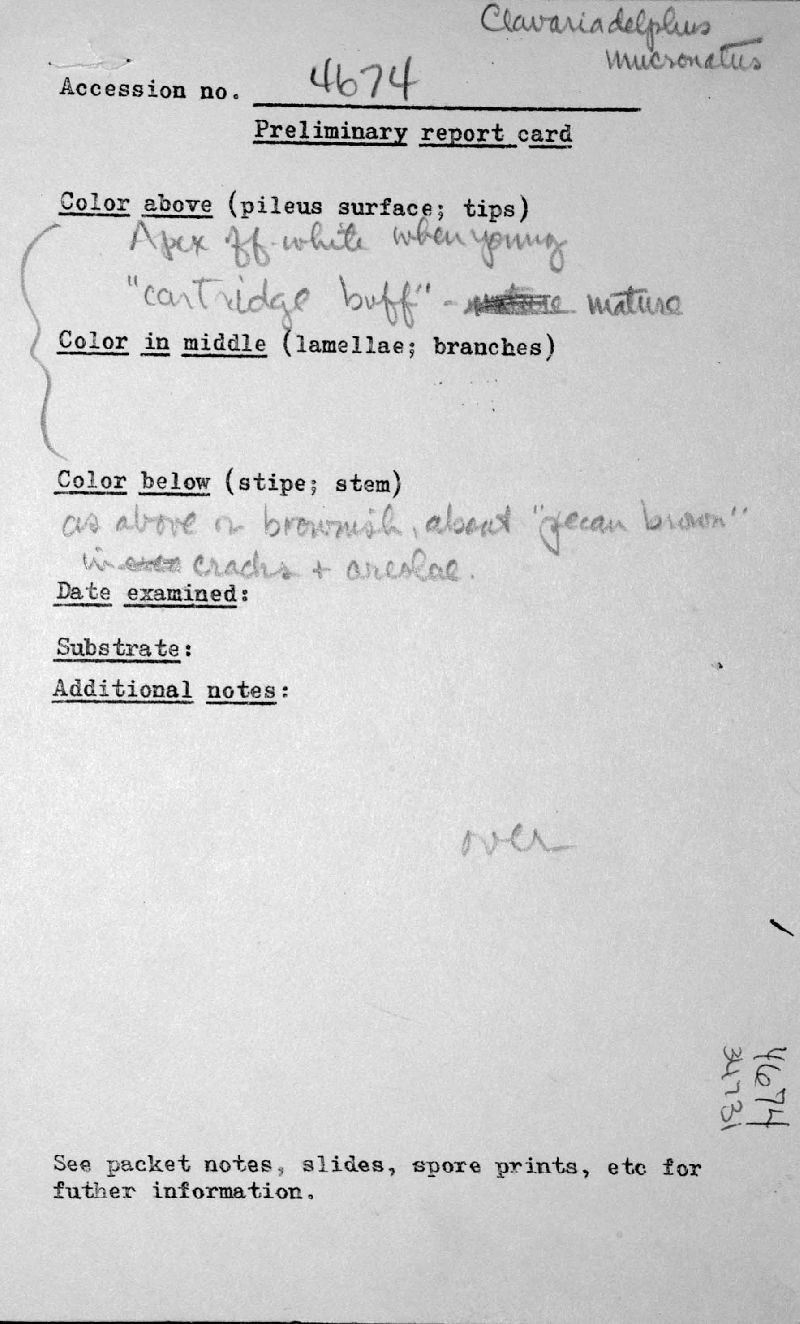 Clavariadelphus
mucronatus
Accession no. 4674
Preliminary report card
Color above (pileus surface; tips)
Apex off-white when young
"cartridge buff" - mature
Color in middle (lamellae; branches)
Color below (stipe; stem)
as above or brownish, about "pecan brown"
in cracks + areolae.
Date examined:
Substrate:
Additional notes:
over
4674
34731
See packet notes, slides, spore prints, etc for
futher information.